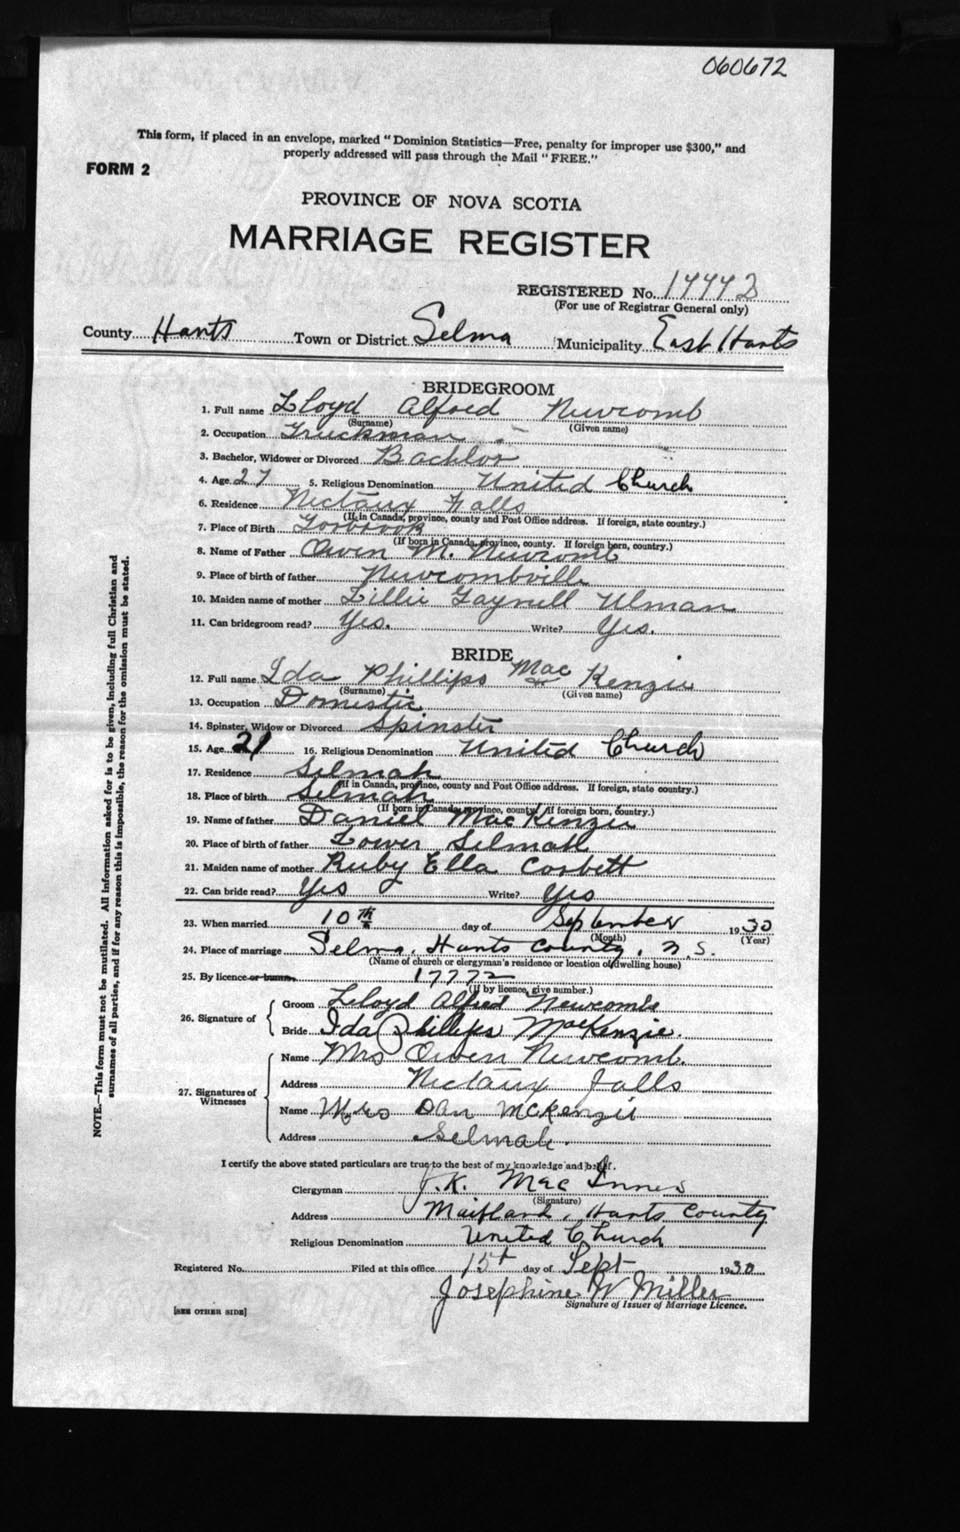 060672
This form, if placed in an envelope, marked "Dominion Statistics—Free, penalty for improper use $300," and
properly addressed will pass through the Mail "FREE."
FORM 2
PROVINCE OF NOVA SCOTIA
MARRIAGE REGISTER
REGISTERED No.
(For use of Registrar General only)
County Hants Town or District Selma Municipality East Hants
BRIDEGROOM
1. Full name Lloyd Alfred Newcomb
(Surname) (Given name)
2. Occupation Truckman
3. Bachelor, Widower or Divorced Bachlor
4. Age 27 5. Religious Denomination United Church
6. Residence Nictaux Falls
(If in Canada, province, county and Post Office address. If foreign, state country.)
7. Place of Birth Torbrook
(If born in Canada, province, county. If foreign born, country.)
8. Name of Father Owen M. Newcomb
9. Place of birth of father Newcombville
10. Maiden name of mother Lillie Ulman
11. Can bridegroom read? Yes. Write? Yes.
BRIDE
12. Full name Ida Phillips Mac Kenzie
(Surname) (Given name)
13. Occupation Domestic
14. Spinster, Widow or Divorced Spinster
15. Age 21 16. Religious Denomination United Church
17. Residence Selmah
(If in Canada, province, county and Post Office address. If foreign, state country.)
18. Place of birth Selmah
(If born in Canada, province, county. If foreign born, country.)
19. Name of father Daniel MacKenzie
20. Place of birth of father Lower Selmah
21. Maiden name of mother Ruby Ella Corbett
22. Can bride read? Yes Write? Yes
23. When married 10th day of September 1930
(Month) (Year)
24. Place of marriage Selma, Hants County, N.S.
(Name of church or clergyman's residence or location of dwelling house)
25. By licence or banns 17772
(If by licence, give number.)
26. Signature of { Groom Lloyd Alfred Newcombe
Bride Ida Phillips MacKenzie.
27. Signatures of Witnesses { Name Mrs Owen Newcomb.
Address Nictaux Falls
Name Mrs Dan McKenzie
Address Selmah.
I certify the above stated particulars are true to the best of my knowledge and belief.
Clergyman J. K. Mac Innes
(Signature)
Address Maitland, Hants County
Religious Denomination United Church
Registered No. Filed at this office 15t day of Sept 1930
Josephine W Miller
Signature of Issuer of Marriage Licence.
[SEE OTHER SIDE]
NOTE.—This form must not be mutilated. All information asked for is to be given, including full Christian and
surnames of all parties, and if for any reason this is impossible, the reason for the omission must be stated.